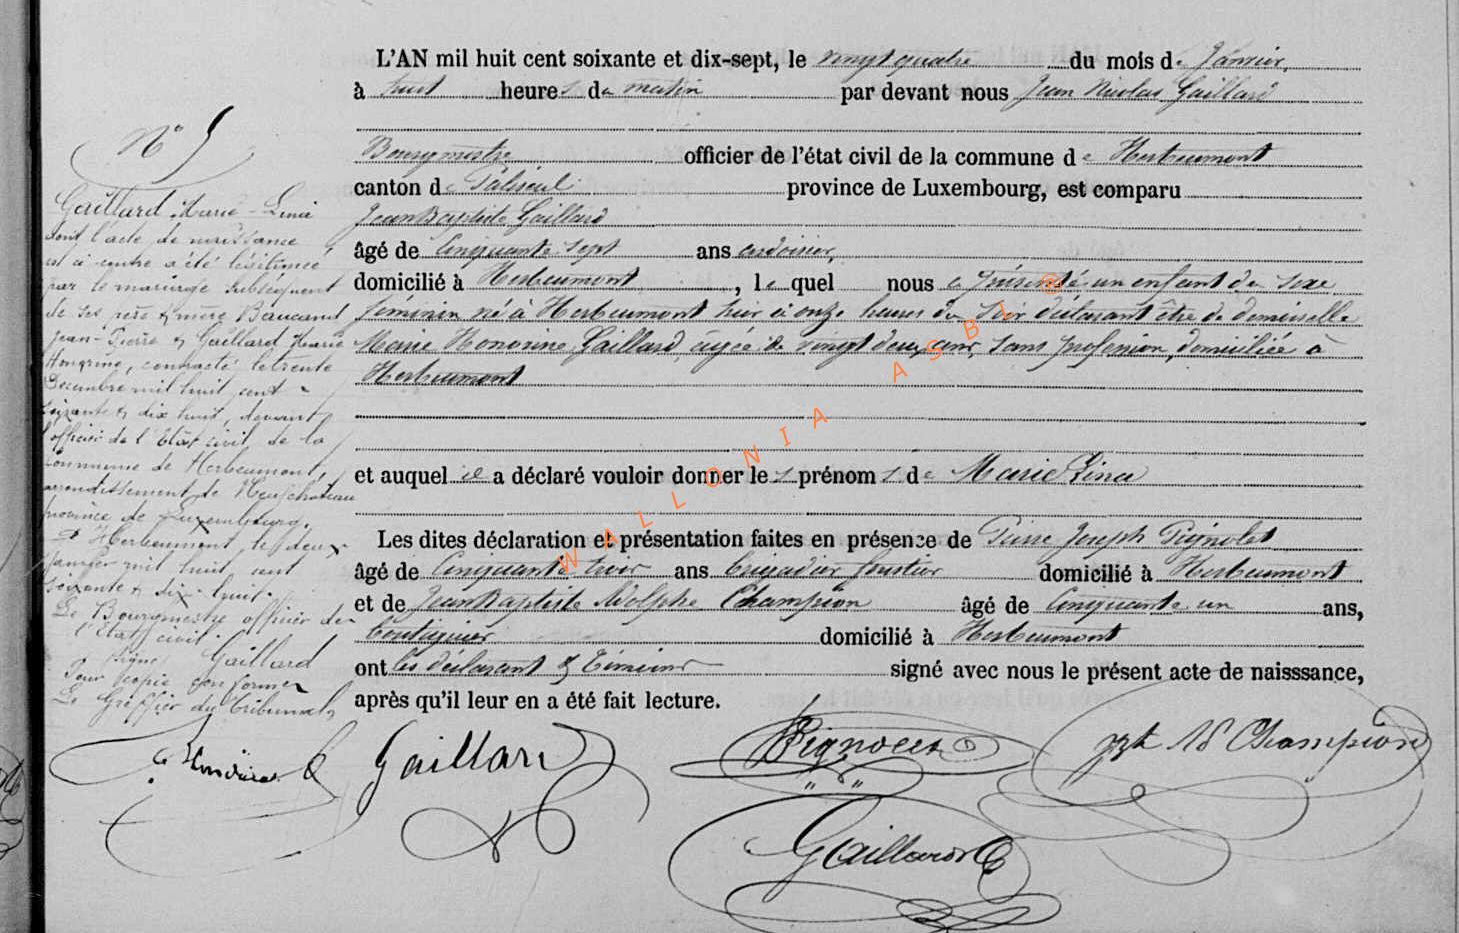 N° 5
Gaillard Marie-Lina
dont l'acte de naissance
est ci contre a été légitimée
par le mariage subséquent
de ses père & mère Baucand
Jean-Pierre & Gaillard Marie
Honorine, contracté le trente
Décembre mil huit cent
soixante & dix huit, devant
l'officier de l'Etat civil de la
commune de Herbeumont,
arrondissement de Neufchâteau
province de Luxembourg.
Herbeumont, le deux
janvier mil huit cent
soixante & dix huit.
Le Bourgmestre officier de
l'Etat civil.
signé Gaillard
Pour copie conforme
Le Greffier du tribunal,
L'AN mil huit cent soixante et dix-sept, le vingt quatre du mois de Janvier,
à huit heures du matin par devant nous Jean Nicolas Gaillard
Bourgmestre officier de l'état civil de la commune de Herbeumont
canton de Paliseul province de Luxembourg, est comparu
Jean Baptiste Gaillard
âgé de Cinquante sept ans ardoisier,
domicilié à Herbeumont, le quel nous a présenté un enfant du sexe
féminin né à Herbeumont hier à onze heures du soir déclarant être de demoiselle
Marie Honorine Gaillard, âgée de vingt deux ans, sans profession, domiciliée à
Herbeumont
et auquel il a déclaré vouloir donner les prénoms de Marie Lina
Les dites déclaration et présentation faites en présence de Pierre Joseph Pignolet
âgé de Cinquante trois ans brigadier forestier domicilié à Herbeumont
et de Jean Baptiste Adolphe Champion âgé de Cinquante un ans,
boutiquier domicilié à Herbeumont
ont les déclarant & témoins signé avec nous le présent acte de naisssance,
après qu'il leur en a été fait lecture.
Gaillard
Pignolet
Champion
Gaillard
© WALLONIA ASBL